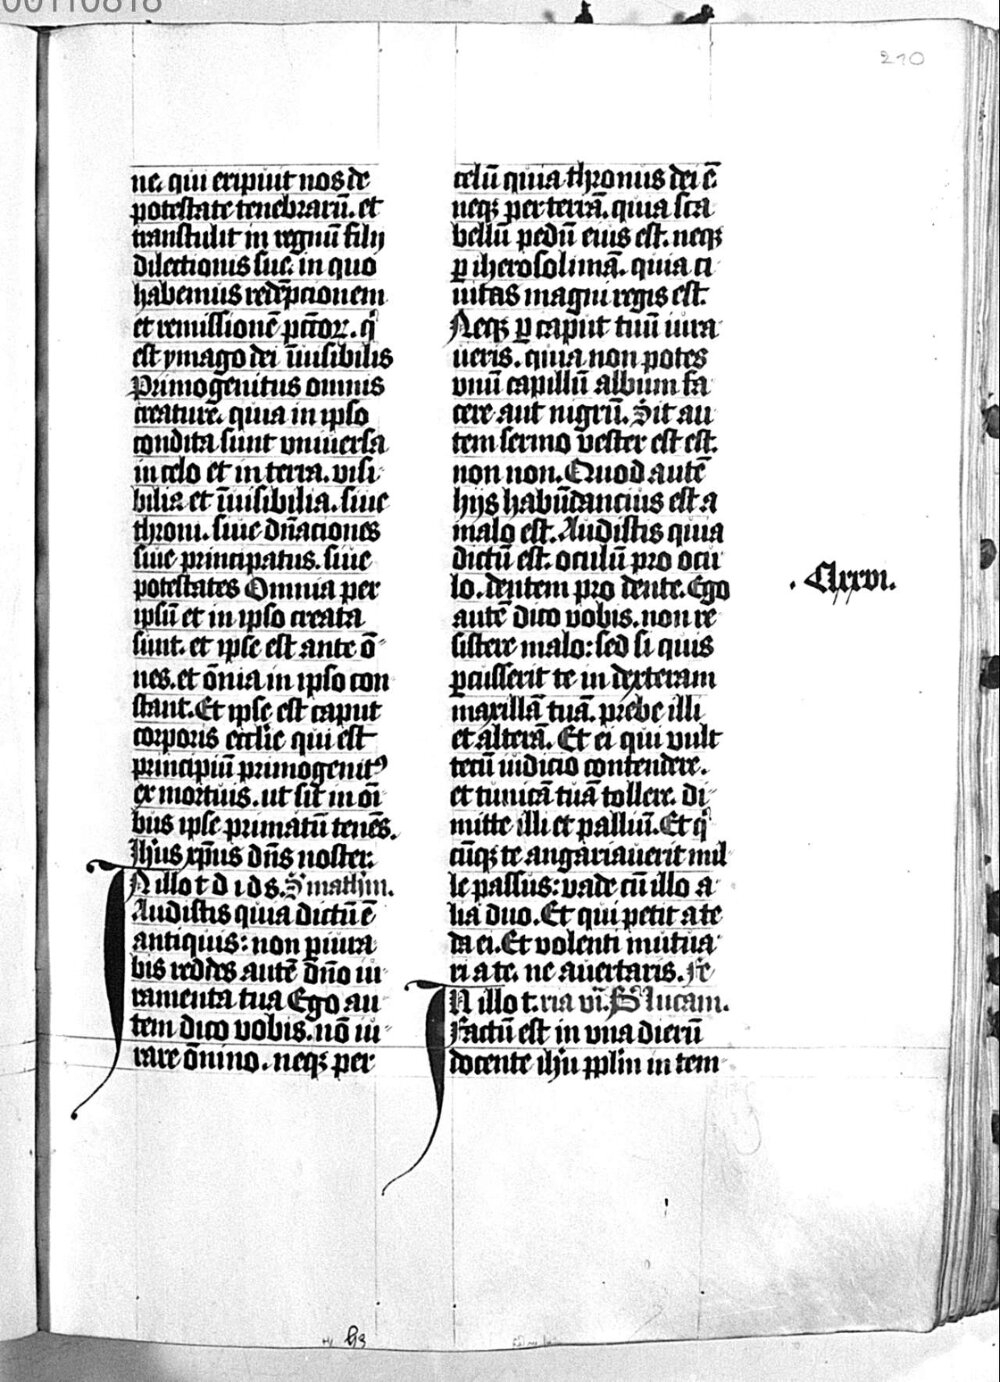 00110818
210
ne. qui eripuit nos de
potestate tenebrarū. et
transtulit in regnū filij
dilectionis sue. in quo
habemus redēpcionem
et remissionē pctōꝝ. qͥ
est ymago dei īuisibilis
Primogenitus omnis
creature. quia in ipso
condita sunt vniuersa
in celo et in terra. visi-
bilia et īuisibilia. siue
throni. siue dn̄aciones
siue principatus. siue
potestates Omnia per
ipsū et in ipso creata
sunt. et ipse est ante ō-
nes. et ōnia in ipso con
stant. Et ipse est caput
corporis ecclīe qui est
principiū primogenitꝰ
ex mortuis. ut sit in oī-
bus ipse primatū tenēs.
Ihūs xp̄us dn̄s noster.
In illo t d i d s. S mathm.
Audistis quia dictū ē
antiquis: non piura-
bis reddes autē dn̄o iu-
ramenta tua Ego au-
tem dico vobis. nō iu-
rare ōnino. neqꝫ per
celū quia thronus dei ē.
neqꝫ per terrā. quia sca-
bellū pedū eius est. neqꝫ
ꝑ iherosolimā. quia ci-
uitas magni regis est.
Neqꝫ ꝑ caput tuū iura-
ueris. quia non potes
vnū capillū album fa-
cere aut nigrū. Sit au-
tem sermo vester est est.
non non. Quod autē
hijs habūdancius est a
malo est. Audistis quia
dictū est. oculū pro ocu-
lo. dentem pro dente. Ego
autē dico vobis. non re-
sistere malo: sed si quis
ꝑcusserit te in dexteram
maxillā tuā. prebe illi
et alterā. Et ei qui vult
tecū iudicio contendere.
et tunicā tuā tollere. di-
mitte illi et palliū. Et qͥ
cūqꝫ te angariauerit mil-
le passus: vade cū illo a-
lia duo. Et qui petit a te
da ei. Et volenti mutua-
ri a te. ne auertaris. Fe
In illo t. ria vī. S lucam.
Factū est in vna dierū
docente ihū pplm in tem-
. Clxxvi.